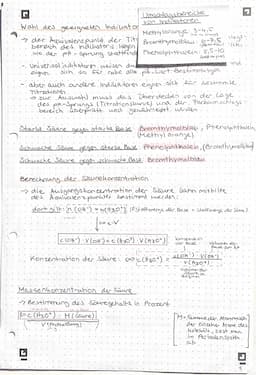 Wahl des geeigneten Indikators
Umschlagsbereiche
von Indikatoren
Methylorange: 3-4,5
Bromthymolblau:
Phenolphthalein:
→ der Äquivalenzpunkt der
bereich des Indikators liegen
wo der pH-Sprung
- Universalindikatoren weisen
eignen sich so für nahe alle pH-Wert-Bestimmungen
- aber auch andere Indikatoren eignen sich für bestimmte
Titrationen
→ zur Auswahl muss das Überdecken von der Lage
des pH-Sprungs (Titrationskurve) und der Farbumschlags
bereich überprüft und gewährleistet werden
Starke Säure gegen starke Base: Bromthymolblau, Phenolphthalein
(Methylorange)
Schwache Säure gegen starke Base: Phenolphthalein, (Bromthymolblau)
Schwache Säure gegen schwache Base: Bromthymolblau
Berechnung der Säurekonzentration
→ die Ausgangskonzentration der Säure kann mithilfe
des Äquivalenzpunkts bestimmt werden.
dort gilt: n(OH⁻) = n(H₃O⁺) (Stoffmenge der Base = Stoffmenge der Säure)
n=c·V
c(OH⁻) · V(OH⁻) = c(H₃O⁺) · V(H₃O⁺)
Konzentration der Säure: c(H₃O⁺) = c(OH⁻) · V(OH⁻)
V(H₃O⁺)
Massenkonzentration der Säure
→ Bestimmung des Säuregehalts in Prozent
c(H₃O⁺) · M(Säure)
M = Summe der
der
, liest man
im Periodensystem
ab